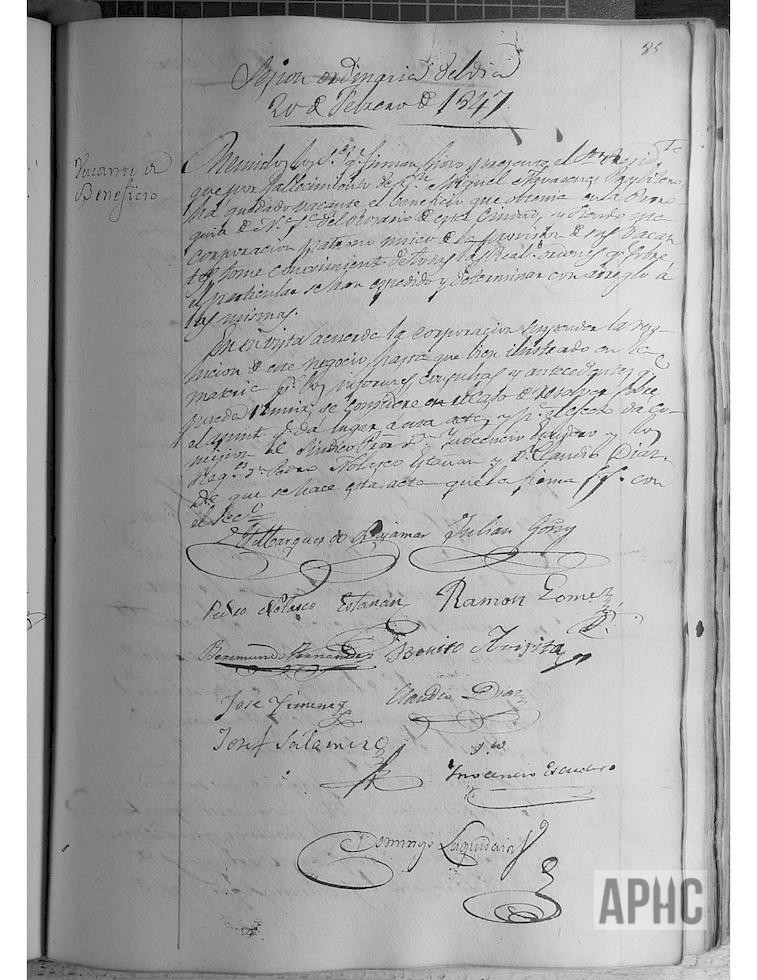 85
Sesion ordinaria del dia
20 de Febrero de 1847.
Vacante de
Beneficio
Reunidos los S.res q.e firman hizo presente el Sor. Presid.te
que por fallecimiento de D.n Miguel Presbitero
ha quedado vacante el beneficio que obtenia en la Parro
quia de N.a S.a del Rosario de esta Ciudad, y siendo esta
Corporacion patrono unico de la provision de sus vacan
tes tome conocimiento de todas las Reales ordenes q.e sobre
el particular se han expedido y determinar con arreglo á
las mismas.
En su vista acuerda la corporacion suspender la reso-
lucion de este negocio, hasta que bien ilustrado en la
materia p.r los informes consultas y antecedentes q.e
pueda reunir, se considere en el caso de resolver sobre
el q.e da lugar a esta acta, y p.a el efecto da co-
mision al Sindico Pror. D.n Inocencio Escudero y los
Reg.es D.n Pedro Nolasco Estañan y D.n Claudio Diaz
de que se hace esta acta que la firma SS. con
el Sec.o
El Marques de Bajamar Julian Goñy
Pedro Nolasco Estañan Ramon Gomez
Beremundo Fernandez Benito Arizita
Jose Ximenez Claudio Diaz
Josef Salamero
Inocencio Escudero
Domingo Laquidain
APHC